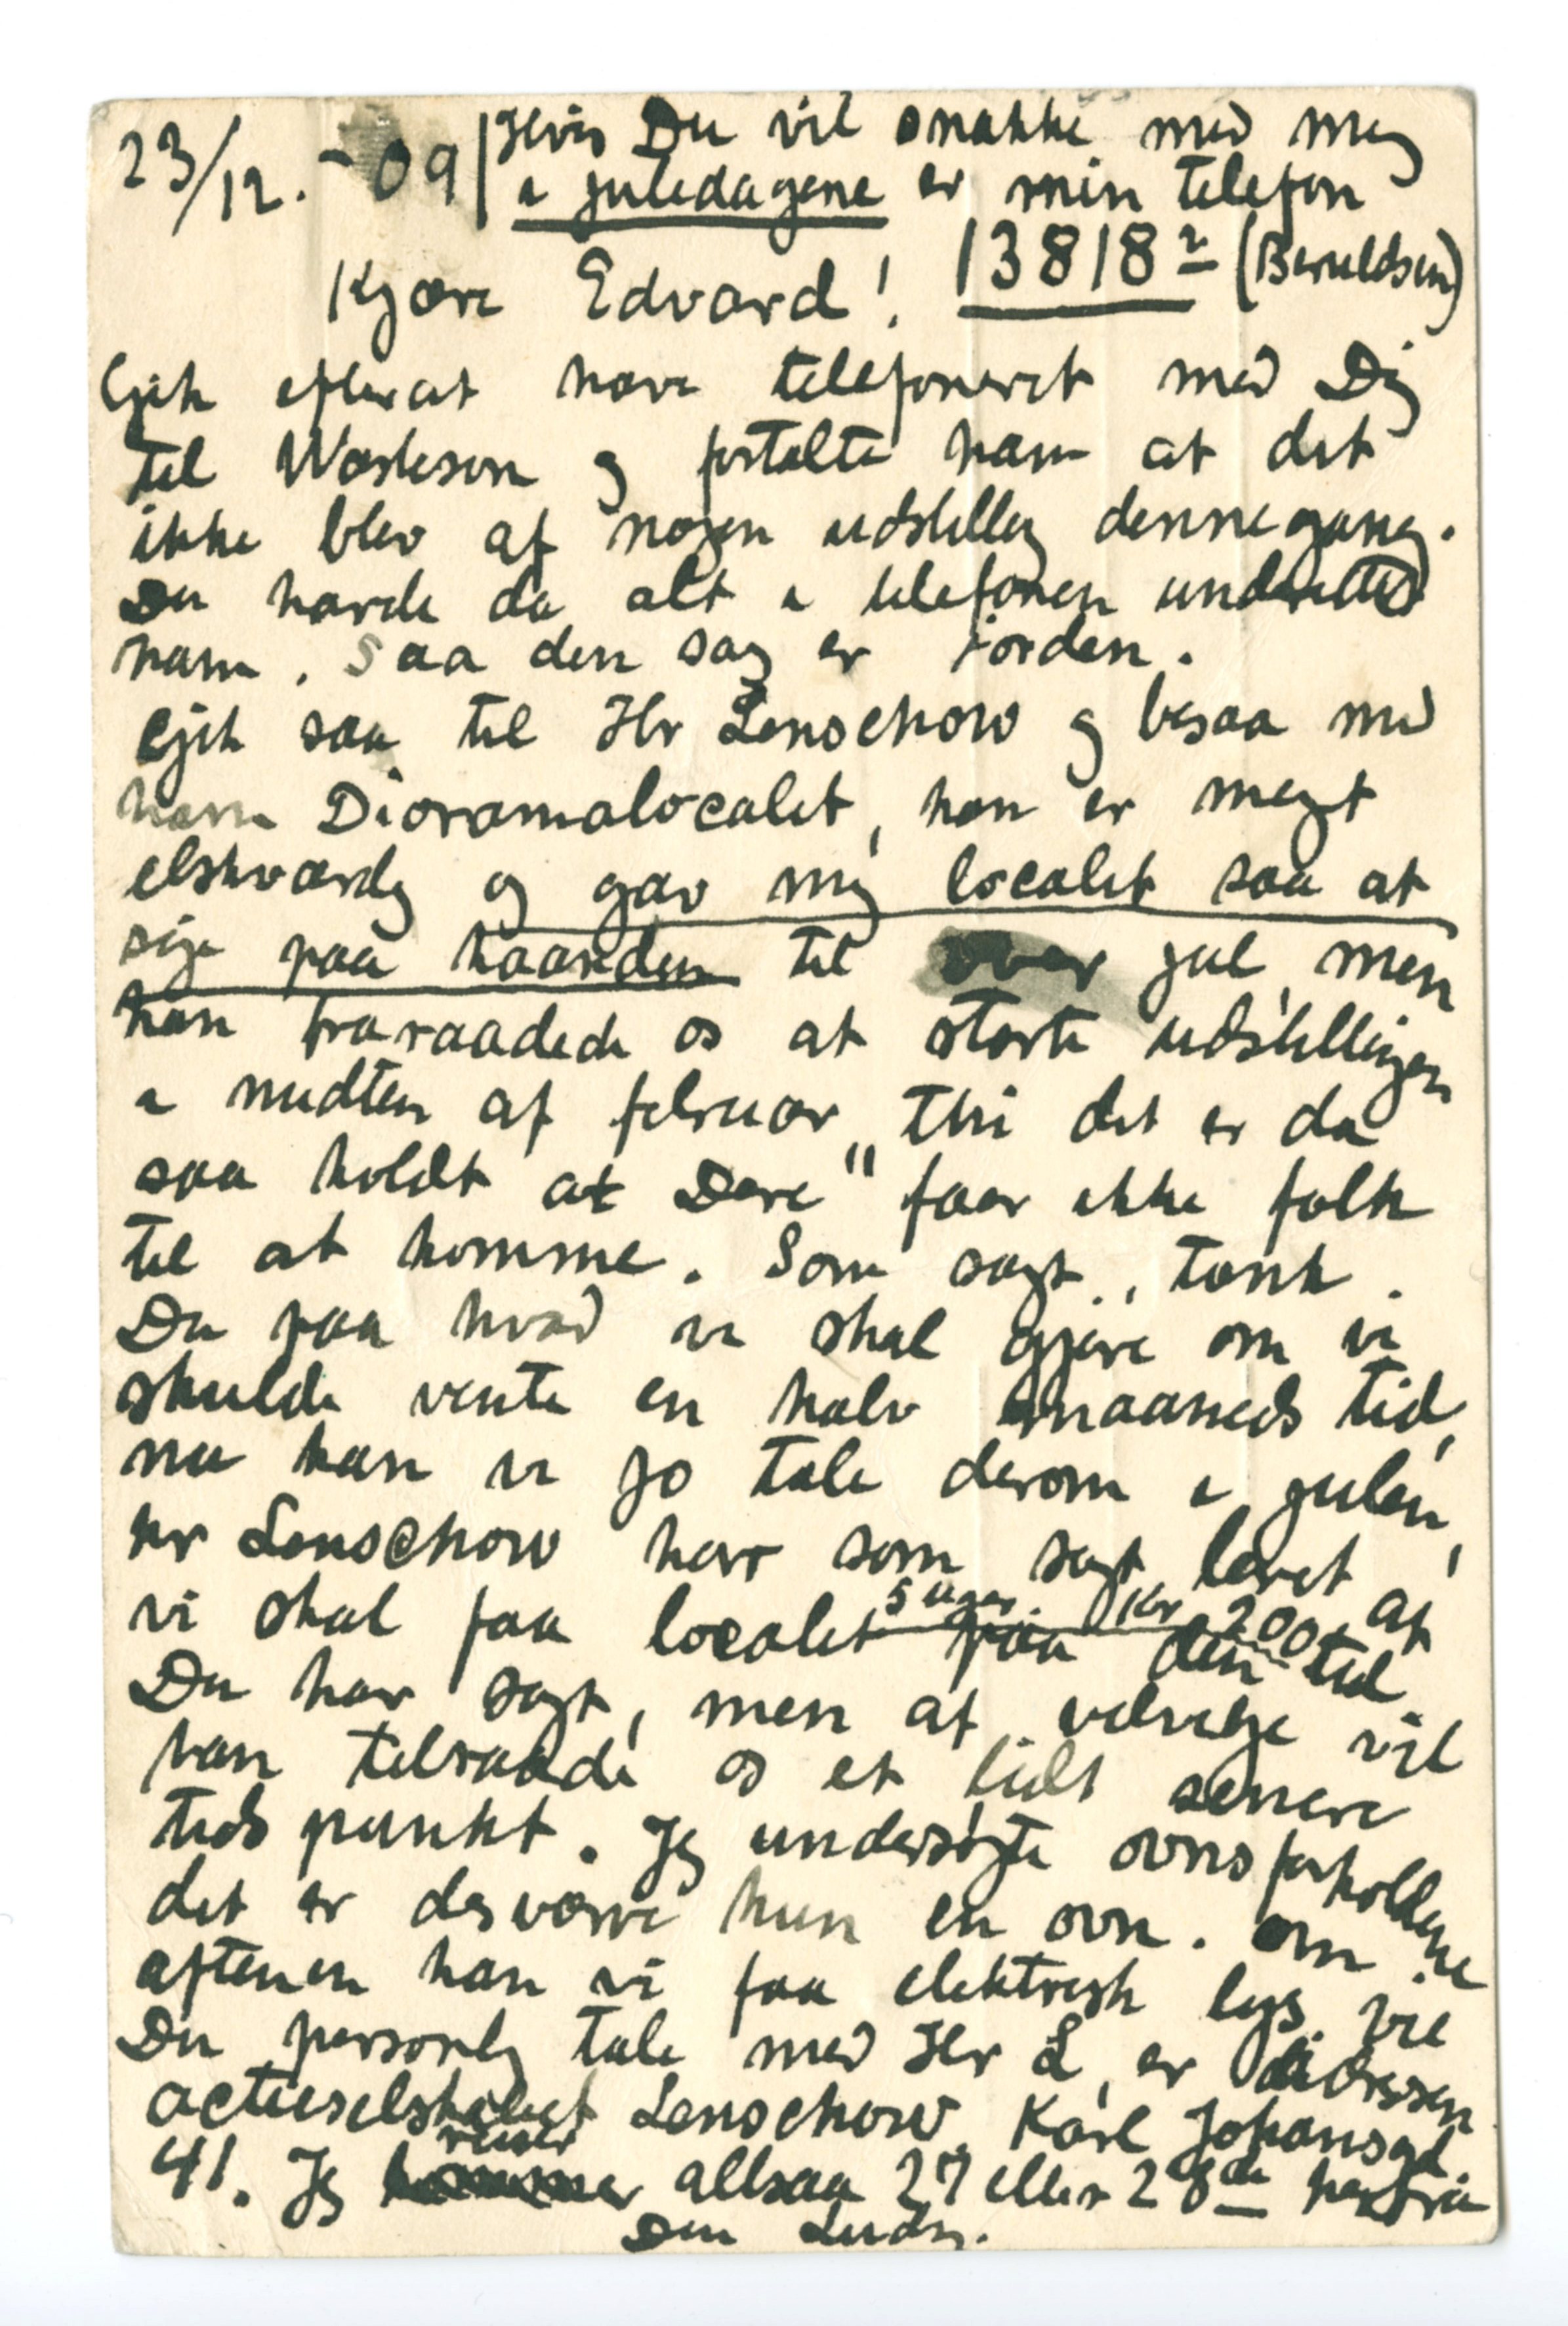 23/12. - 09 | Hvis Du vil snakke med mig
i juledagene er min telefon
13818² (Beruldsen)
Kjære Edvard!
Gik efterat have telefoneret med Dig
til Wasleson og fortalte ham at det
ikke blev af nogen udstilling dennegang.
Du havde da alt i telefonen underettet
ham. Saa den sag er iorden.
Gik saa til Hr Lenschow og besaa med
ham Dioramalocalet, han er meget
elskværdig og gav mig localet saa at
sige paa haanden til over jul, men
han fraraadede os at starte udstillingen
i midten af februar „thi det er da
saa koldt at Dere" faar ikke folk
til at komme. Som sagt, tænk
Du paa hvad vi skal gjøre om vi
skulde vente en halv maaneds tid,
nu kan vi jo tale derom i julen,
hr Lenschow har som sagt lovet at
5 uger Kr 200
vi skal faa localet paa den tid
Du har sagt, men af velvilje vil
han tilraade os et lidt senere
tids punkt. Jeg undersøgte ovnsforholdene
det er desværre kun en ovn. Om
aftenen kan vi faa elektrisk lys. Vil
Du personlig tale med Hr L, er adressen
actieselskabet Lenschow Karl Johansgd
41. Jeg reiser altsaa 27 eller 28de herfra
Din Ludv.